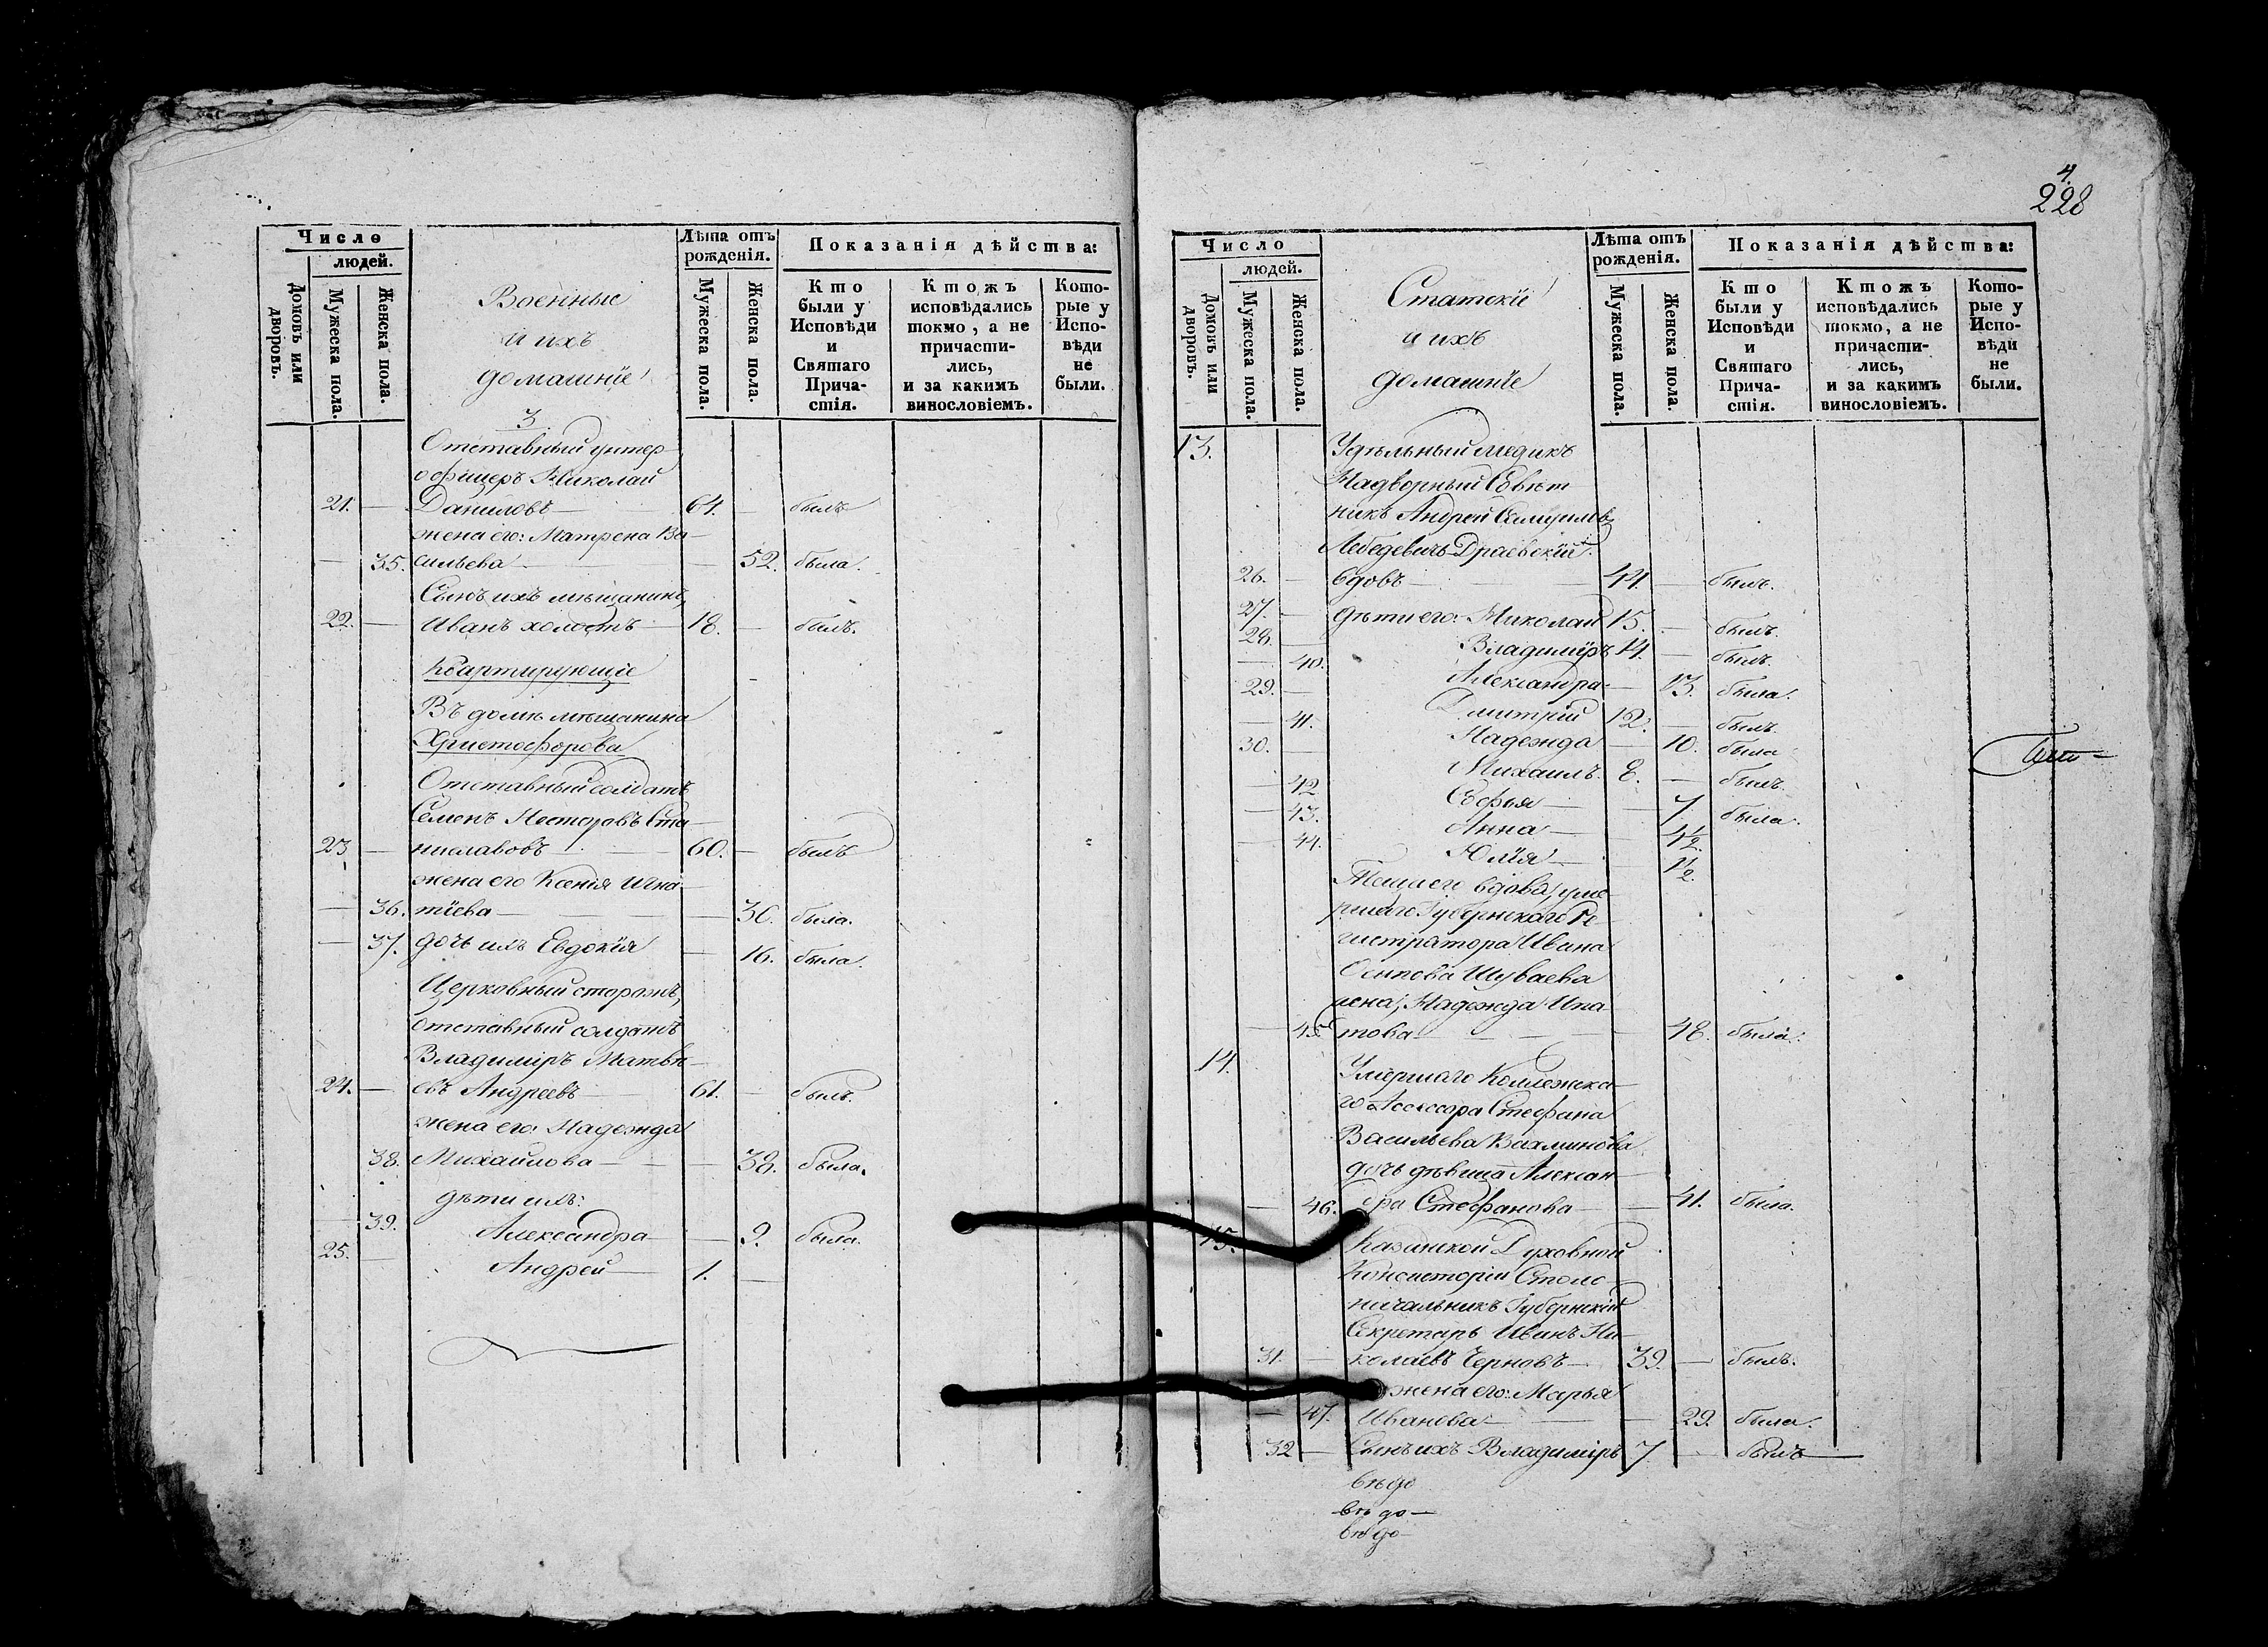 Число
людей.
Домовъ или дворовъ.
Мужеска пола.
Женска пола.
Военные
и ихъ
домашніе
Лѣта отъ
рожденія.
Мужеска пола.
Женска пола.
Показанія дѣйства:
Кто
были у
Исповѣди
и
Святаго
Прича-
стія.
Ктожъ
исповѣдались
токмо, а не
причасти-
лись,
и за какимъ
винословіемъ.
Кото-
рые у
Испо-
вѣди
не
были.
3
Отставный унтер
офицеръ Николай
21. — Даниловъ — 64. — былъ
жена его: Матрена Ва-
— 35. сильева — — 52. была.
Сынъ ихъ мѣщанинъ,
22. — Иванъ холостъ — 18. — былъ.
Квартирующіе
Въ домѣ мѣщанина
Христофорова
Отставный солдатъ
Семенъ Несторовъ Ста-
23 — ниславовъ — 60. — былъ
жена его Ксенія Игна-
— 36. тіева — — 36. была.
— 37. дочь ихъ Евдокія — 16. была.
Церковный сторожъ,
отставный солдатъ
Владиміръ Матвѣ-
24. — евъ Андреевъ — 61. — былъ.
жена его: Надежда
— 38. Михайлова — — 38. была.
дѣти ихъ:
— 39. Александра — — 9. была.
25. — Андрей — 1. —
4.
228
Число
людей.
Домовъ или дворовъ.
Мужеска пола.
Женска пола.
Статскіе
и ихъ
домашніе
Лѣта отъ
рожденія.
Мужеска пола.
Женска пола.
Показанія дѣйства:
Кто
были у
Исповѣди
и
Святаго
Прича-
стія.
Ктожъ
исповѣдались
токмо, а не
причасти-
лись,
и за какимъ
винословіемъ.
Кото-
рые у
Испо-
вѣди
не
были.
13. Удѣльный медикъ
Надворный Совѣт
никъ Андрей
Лебедевичъ-Драевскій.
26. — вдовъ — 44. — былъ.
27. — дѣти его: Николай 15. — былъ.
28. — Владиміръ 14. — былъ.
— 40. Александра — 13. была.
29. — Дмитрій 12. — былъ.
— 41. Надежда — 10. была
30. — Михаилъ. 8. — былъ.
— 42 Софья — — 7. была.
— 43. Анна — 4½
— 44. Юлія — 1½.
Теща его вдова, уме-
ршаго Губернскаго Ре-
гистратора Ивана
Осипова Шуваева
жена, Надежда Ипа-
— 45. това — — 48. была.
14. Умершаго Коллежска-
го Асессора Стефана
Васильева Вахминова
дочь дѣвица Алексан-
— 46. дра Стефанова — — 41. была.
15. Казанской Духовной
Консисторіи Столо-
начальникъ Губернскій
Секретарь Иванъ Ни-
31. — колаевъ Черновъ — 39. — былъ.
жена его: Марья
— 47. Иванова — — 29. была.
32 — Сынъ ихъ Владиміръ 7 — былъ
вѣдо
вѣдо —
вѣдо